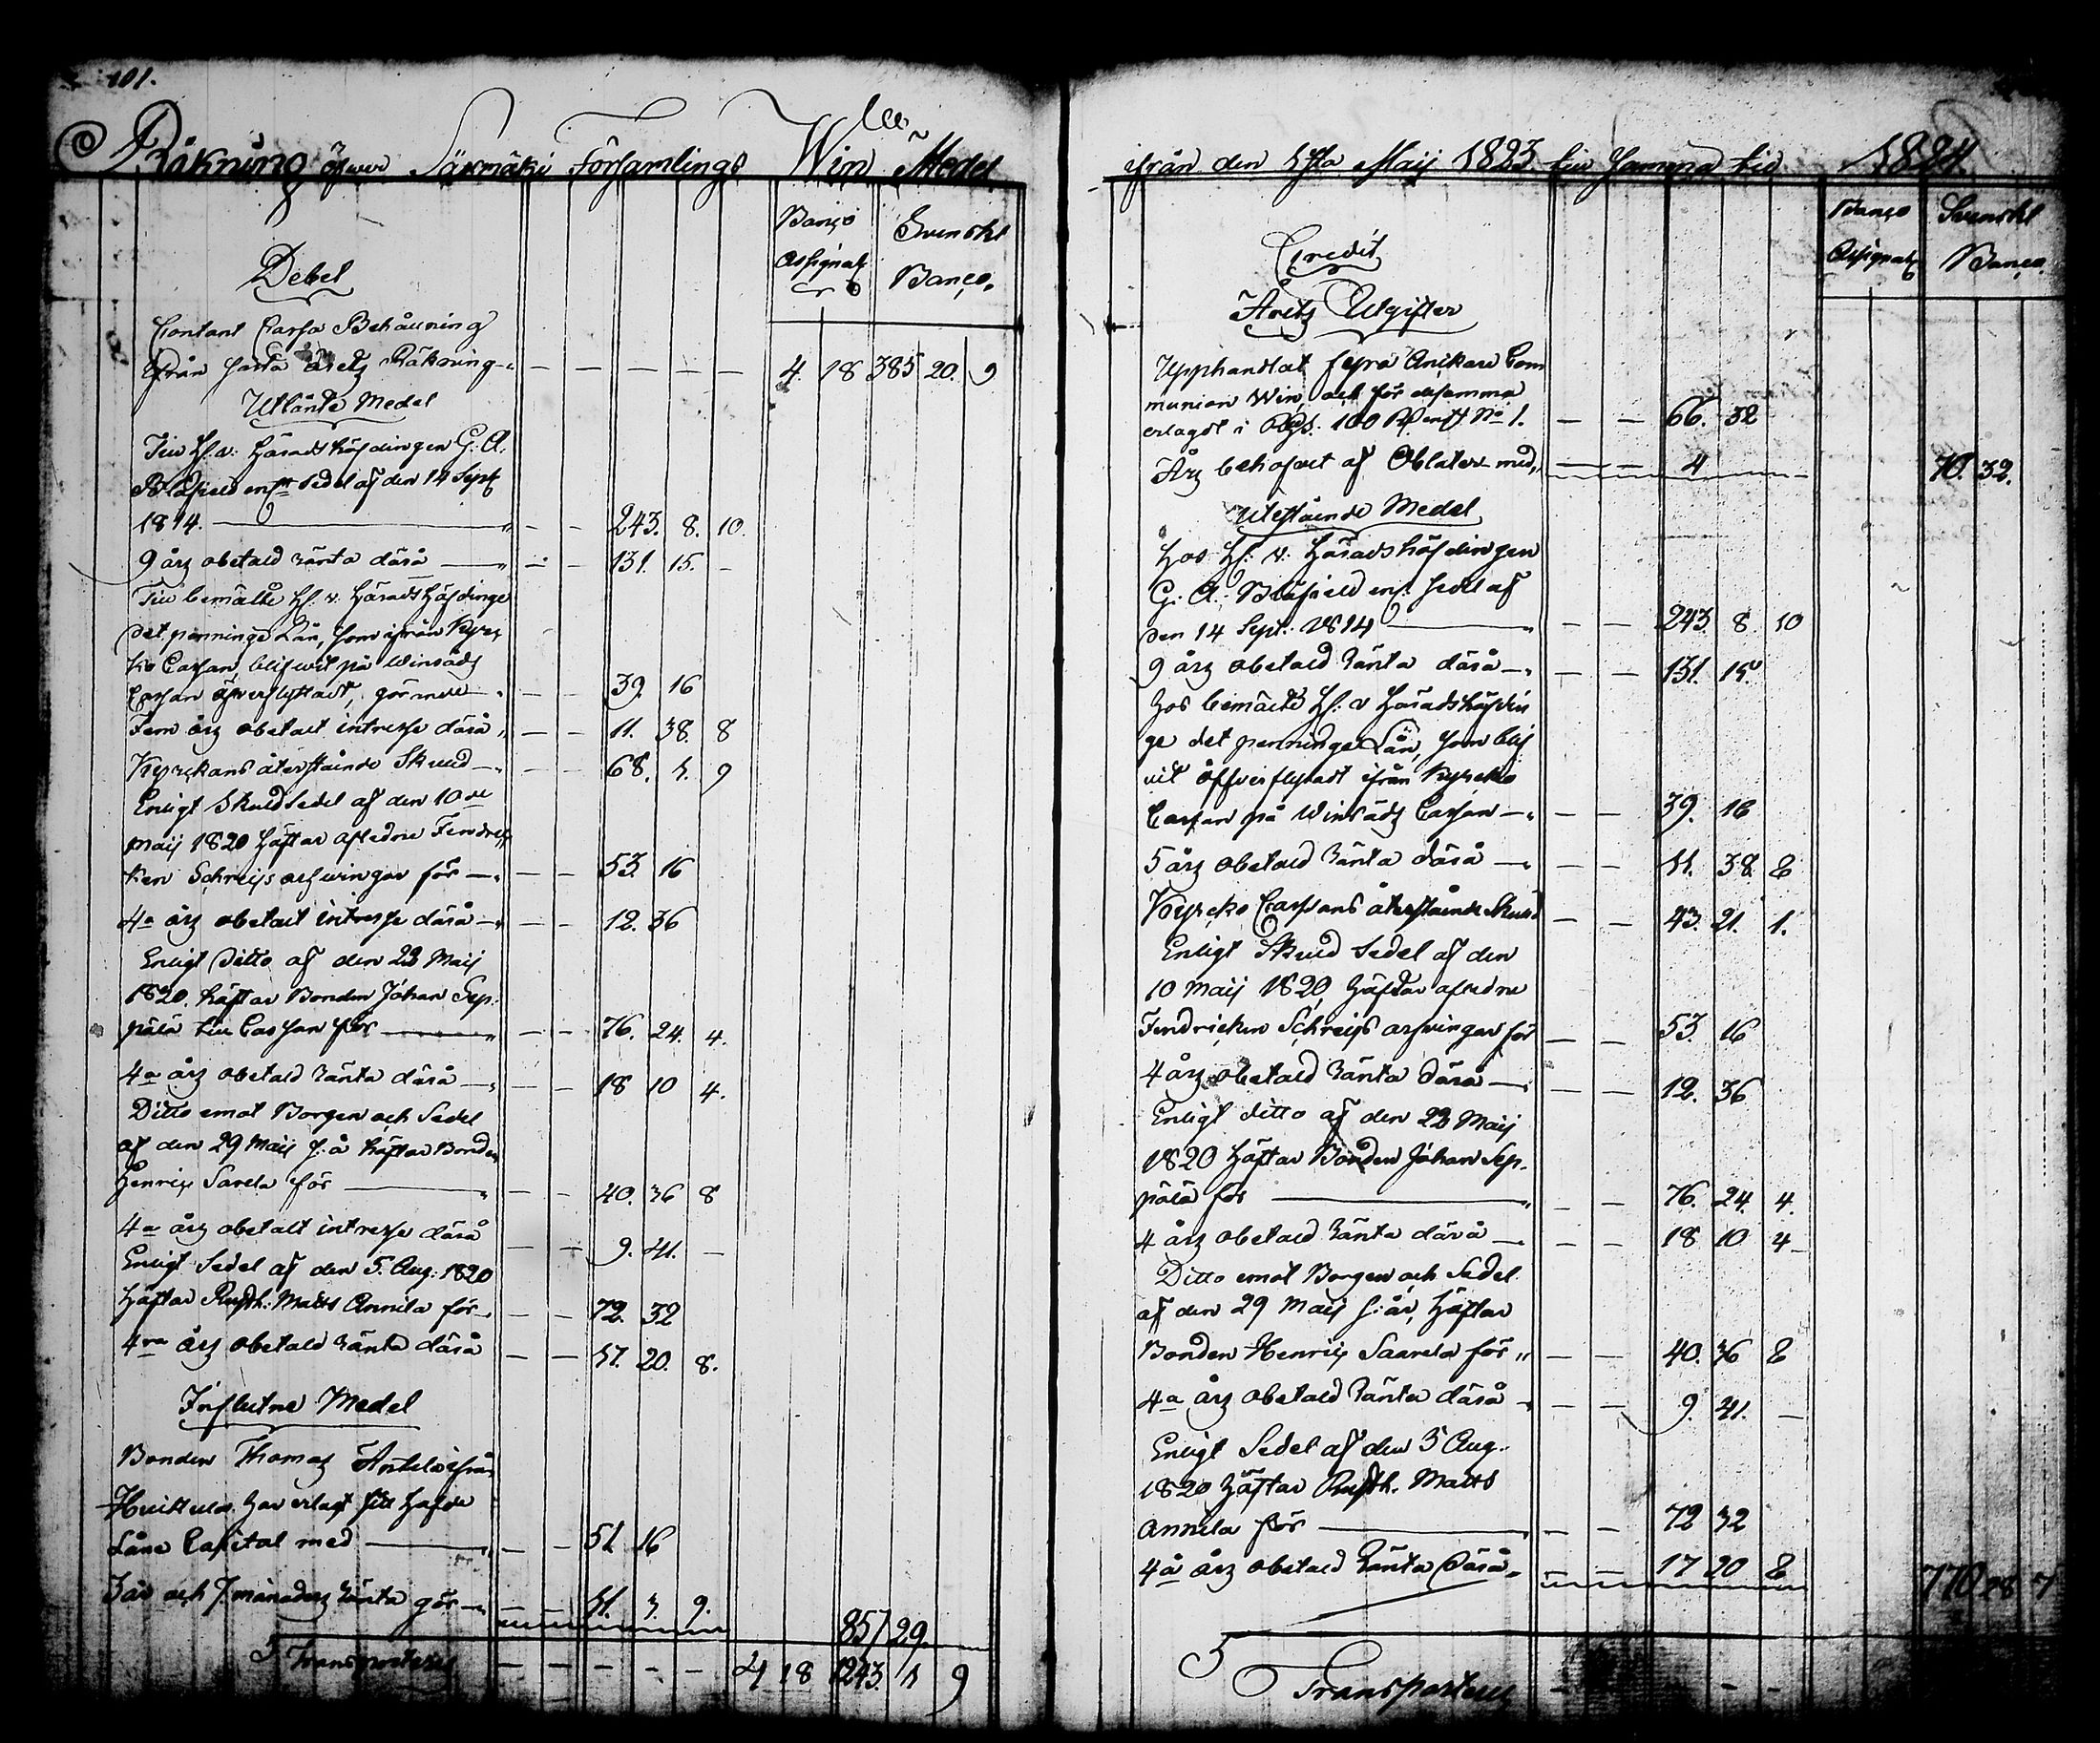 101.
Räkning öfwer Säxmäki Församlings Win Medel
Banco Assignat.
Svenskt Banco.
Debet
Contant Cassa Behållning
ifrån sista årets Räkning — — — — — 4. 18 385 20. 9
Utlånte Medel
Till H. v. Häradshöfdingen G. A.
Blåfield enl. Sedel af den 14 Sept
1814. — — — 243. 8. 10.
9 års obetald ränta därå — — — 131. 15. -
Till bemälte H. v. Häradshöfdinge
det penninge Lån, som ifrån Kyr-
ko Cassan blifwit på Winsädz
Cassan öfwerflyttadt, gör med — — — 39. 16
Fem års obetalt intresse därå — — 11. 38. 8
Kyrckans återstående Skuld — — — 68. 1. 9
Enligt Skuldsedel af den 10de
Maij 1820 häftar afledne Fendric-
ken Schreijs arfwingar för — — — 53. 16
4a års obetalt intresse därå — — — 12. 36
Enligt Ditto af den 22 Maij
1820. häftar Bonden Johan Sep-
pälä till Cassan för — — — 76. 24. 4.
4a års obetald ränta därå — — — 18 10 4.
Ditto emot Borgen och Sedel
af den 29 Maij s: å häftar Bonden
Henric Sarela för — — — 40. 36 8
4a års obetalt intresse därå — — 9. 41. —
Enligt Sedel af den 5. Aug: 1820
häftar Rusth: Matts Annila för — — 72. 32
4ra års obetald ränta därå — — 17. 20. 8.
Influtne Medel
Bonden Thomas Anttila ifrån
Huittula har erlagt sitt hafde
Låne Capital med — — — 51 16
3 år och 7 månaders ränta gör — 11. 3. 9.
857 29.
Transporteras — — — — — 4 18 1243. 1 9
ifrån den 1sta Maij 1823 till samma tid 1824.
Banco Assignat.
Svenskt Banco.
Credit
Årets Utgifter
Upphandlat fyra Ankare Com
munion Win, och för densamma
erlagdt i Rgs. 100 R. enl. No 1. — — 66. 32
Års behofvet af Oblater med — — 4 70. 32.
Utestående Medel
Hos H. v. Häradshöfdingen
G: A: Blåfield enl. Sedel af
den 14 Sept: 1814 — — — 243 8. 10
9 års obetald ränta därå — — — 131. 15.
Hos bemälte H. v Häradshöfdin
ge det penninge Lån, som blif
vit öfwerflyttadt ifrån Kyrcko
Cassan på Winsädz Cassan — — — 39. 16
5 års obetald ränta därå — — — 11. 38. 8
Kyrcko Cassans återstående Skuld — — 43. 21. 1.
Enligt Skuld Sedel af den
10 Maij 1820 häftar afledne
Fendricken Schreijs arfwingar för — — 53. 16
4 års obetald ränta därå — — — 12. 36
Enligt ditto af den 22 Maij
1820 häftar Bonden Johan Sep-
pälä för — — — 76. 24. 4.
4 års obetald ränta därå — — — 18 10 4
Ditto emot Borgen och Sedel
af den 29 Maij s: år, häftar
Bonden Henric Saarela för — — 40. 36 8
4a års obetald ränta därå — — 9. 41. —
Enligt Sedel af den 5 Aug:
1820 häftar Rusth. Matts
Annila för — — — 72 32
4a års obetald Ränta därå — — 17 20 8 770 28 7
Transporteras — — —